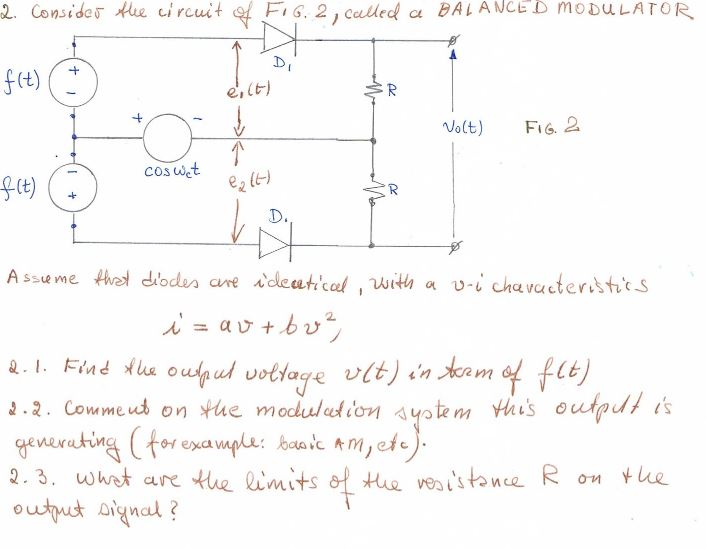 2. Consider the circuit of FIG. 2, called a BALANCED MODULATOR
D1
f(t)
+
-
e1(t)
R
+
-
Vo(t)
FIG. 2
cosWct
-
+
f(t)
e2(t)
R
D.
Assume that diodes are identical, with a v-i characteristics
i = av + bv²,
2.1. Find the output voltage v(t) in term of f(t)
2.2. Comment on the modulation system this output is
generating (for example: basic AM, etc).
2.3. What are the limits of the resistance R on the
output signal?